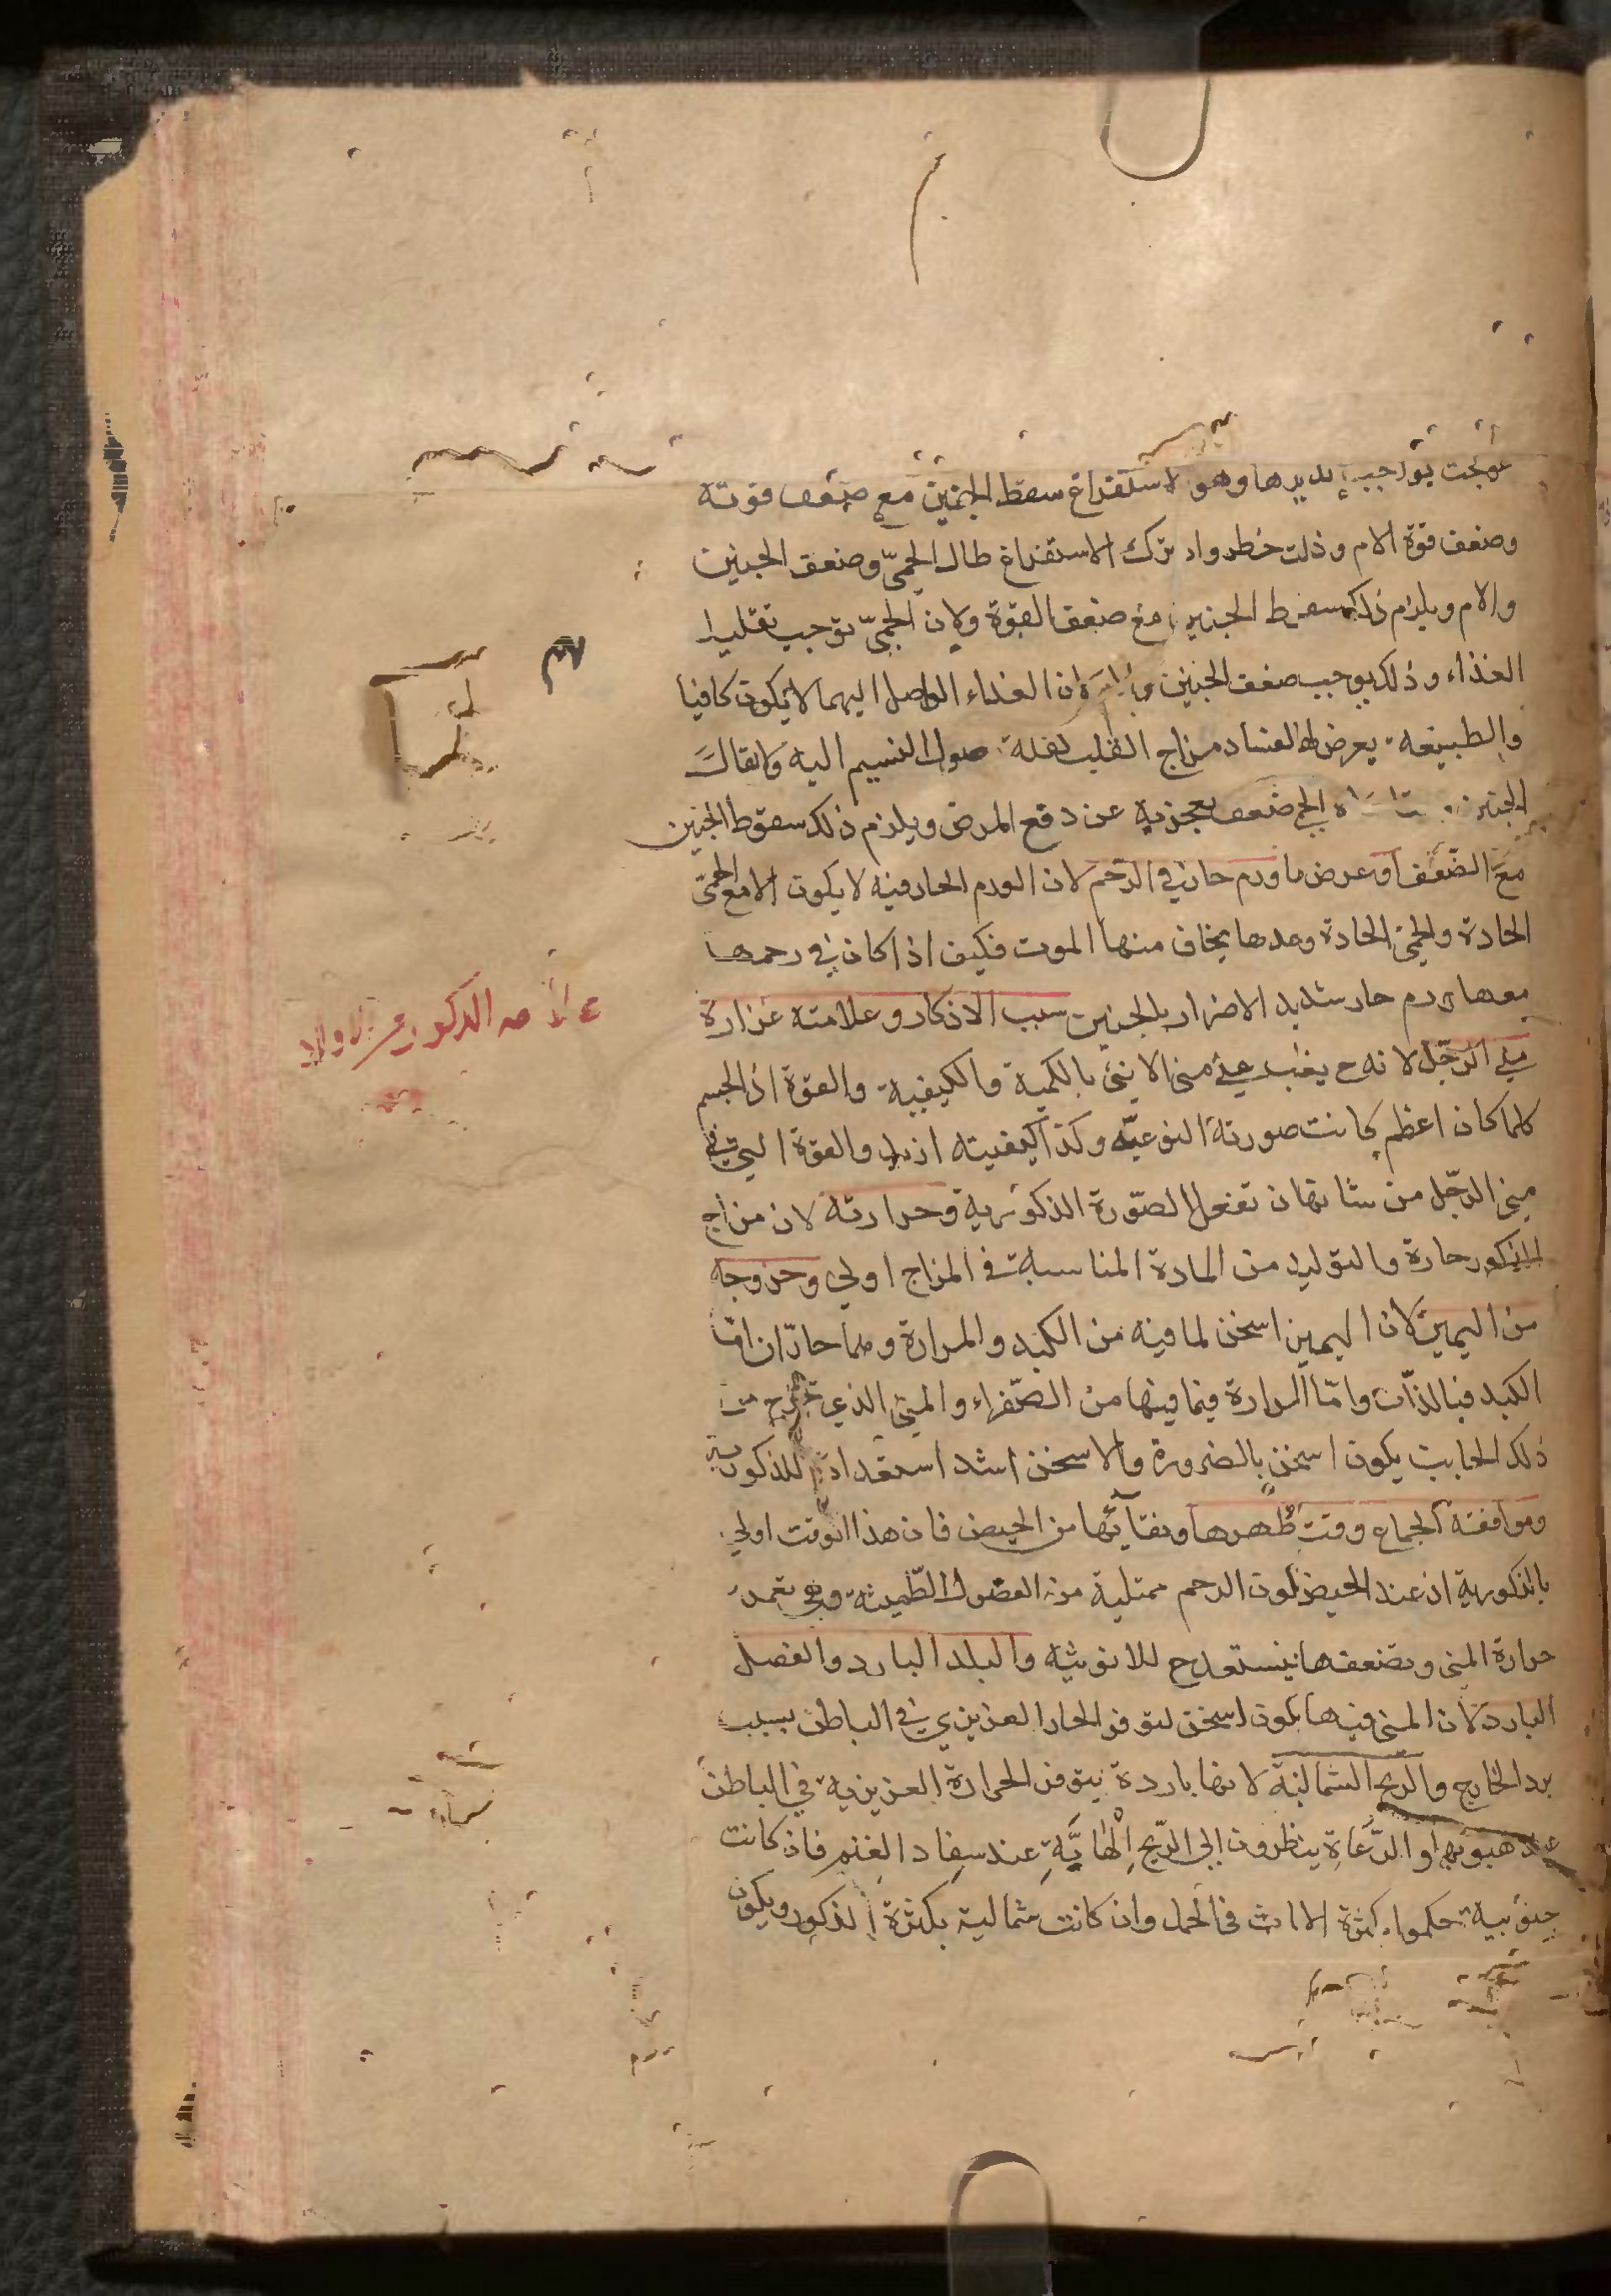 عولجت بواجب تدبيرها وهو الاستفراغ سقط الجنين مع ضعف قوته
وضعف قوة الام وذلك خطر وان ترك الاستفراغ طال الحمىّ وضعف الجنين
والام ويلزم ذلك سقوط الجنين مع ضعف القوة ولان الحمىّ توجب تقليل
الغذاء وذلك يوجب ضعف الجنين ان الغذاء الواصل اليهما لا يكون كافيا
والطبيعة يعرض لها لفساد مزاج القلب لقلة وصول النسيم اليه
الجنين ضعف يعجز به عن دفع المرض ويلزم ذلك سقوط الجنين
مع الضّعف او عرض ما ورم حار في الرّحم لان الورم الحار فيه لا يكون الا مع الحمىّ
الحادة والحمىّ الحادة وحدها يخاف منها الموت فكيف اذا كان في رحمها
معها ورم حار شديد الاضرار بالجنين سبب الاذكار وعلامته غزارة
منى الرّجل لانه ح يغلب على منى الانثى بالكمية والكيفية والقوة اذ الجسم
كلما كان اعظم كانت صورته النوعيّة وكذا كيفيته ازيد والقوة التي في
منى الرّجل من شانها ان تفعل الصّورة الذكورية وحرارته لان مزاج
الذكور حارة والتوليد من المادة المناسبة في المزاج اولى وخروجه
من اليمين لان اليمين اسخن لما فيه من الكبد والمرارة وهما حارّان امّا
الكبد فبالذّات وامّا المرارة فبما فيها من الصّفراء والمنى الذي تخرج من
ذلك الجانب يكون اسخن بالضرورة والاسخن اشد استعدادا للذكورية
وموافقته الجماع وقت طُهرها ونقائها من الحيض فان هذا الوقت اولى
بالذكورية اذ عند الحيض يكون الرحم ممتلية من الفضول الطّمثية وهي تغمر
حرارة المنى وتضعفها فيستعد ح للانوثية والبلد البارد والفصل
البارد لان المنى فيها يكون اسخن لتوفر الحار الغريزي في الباطن بسبب
برد الخارج والريح الشمالية لانها باردة يتوفر الحرارة الغريزية في الباطن
عند هبوبها والرّعاة ينظرون الى الرّيح الْهابَّةِ عند سفاد الغنم فان كانت
جنوبية حكموا بكثرة الاناث في الحمل وان كانت شمالية بكثرة الذكور ويكون
علامه الذكور من الاولاد